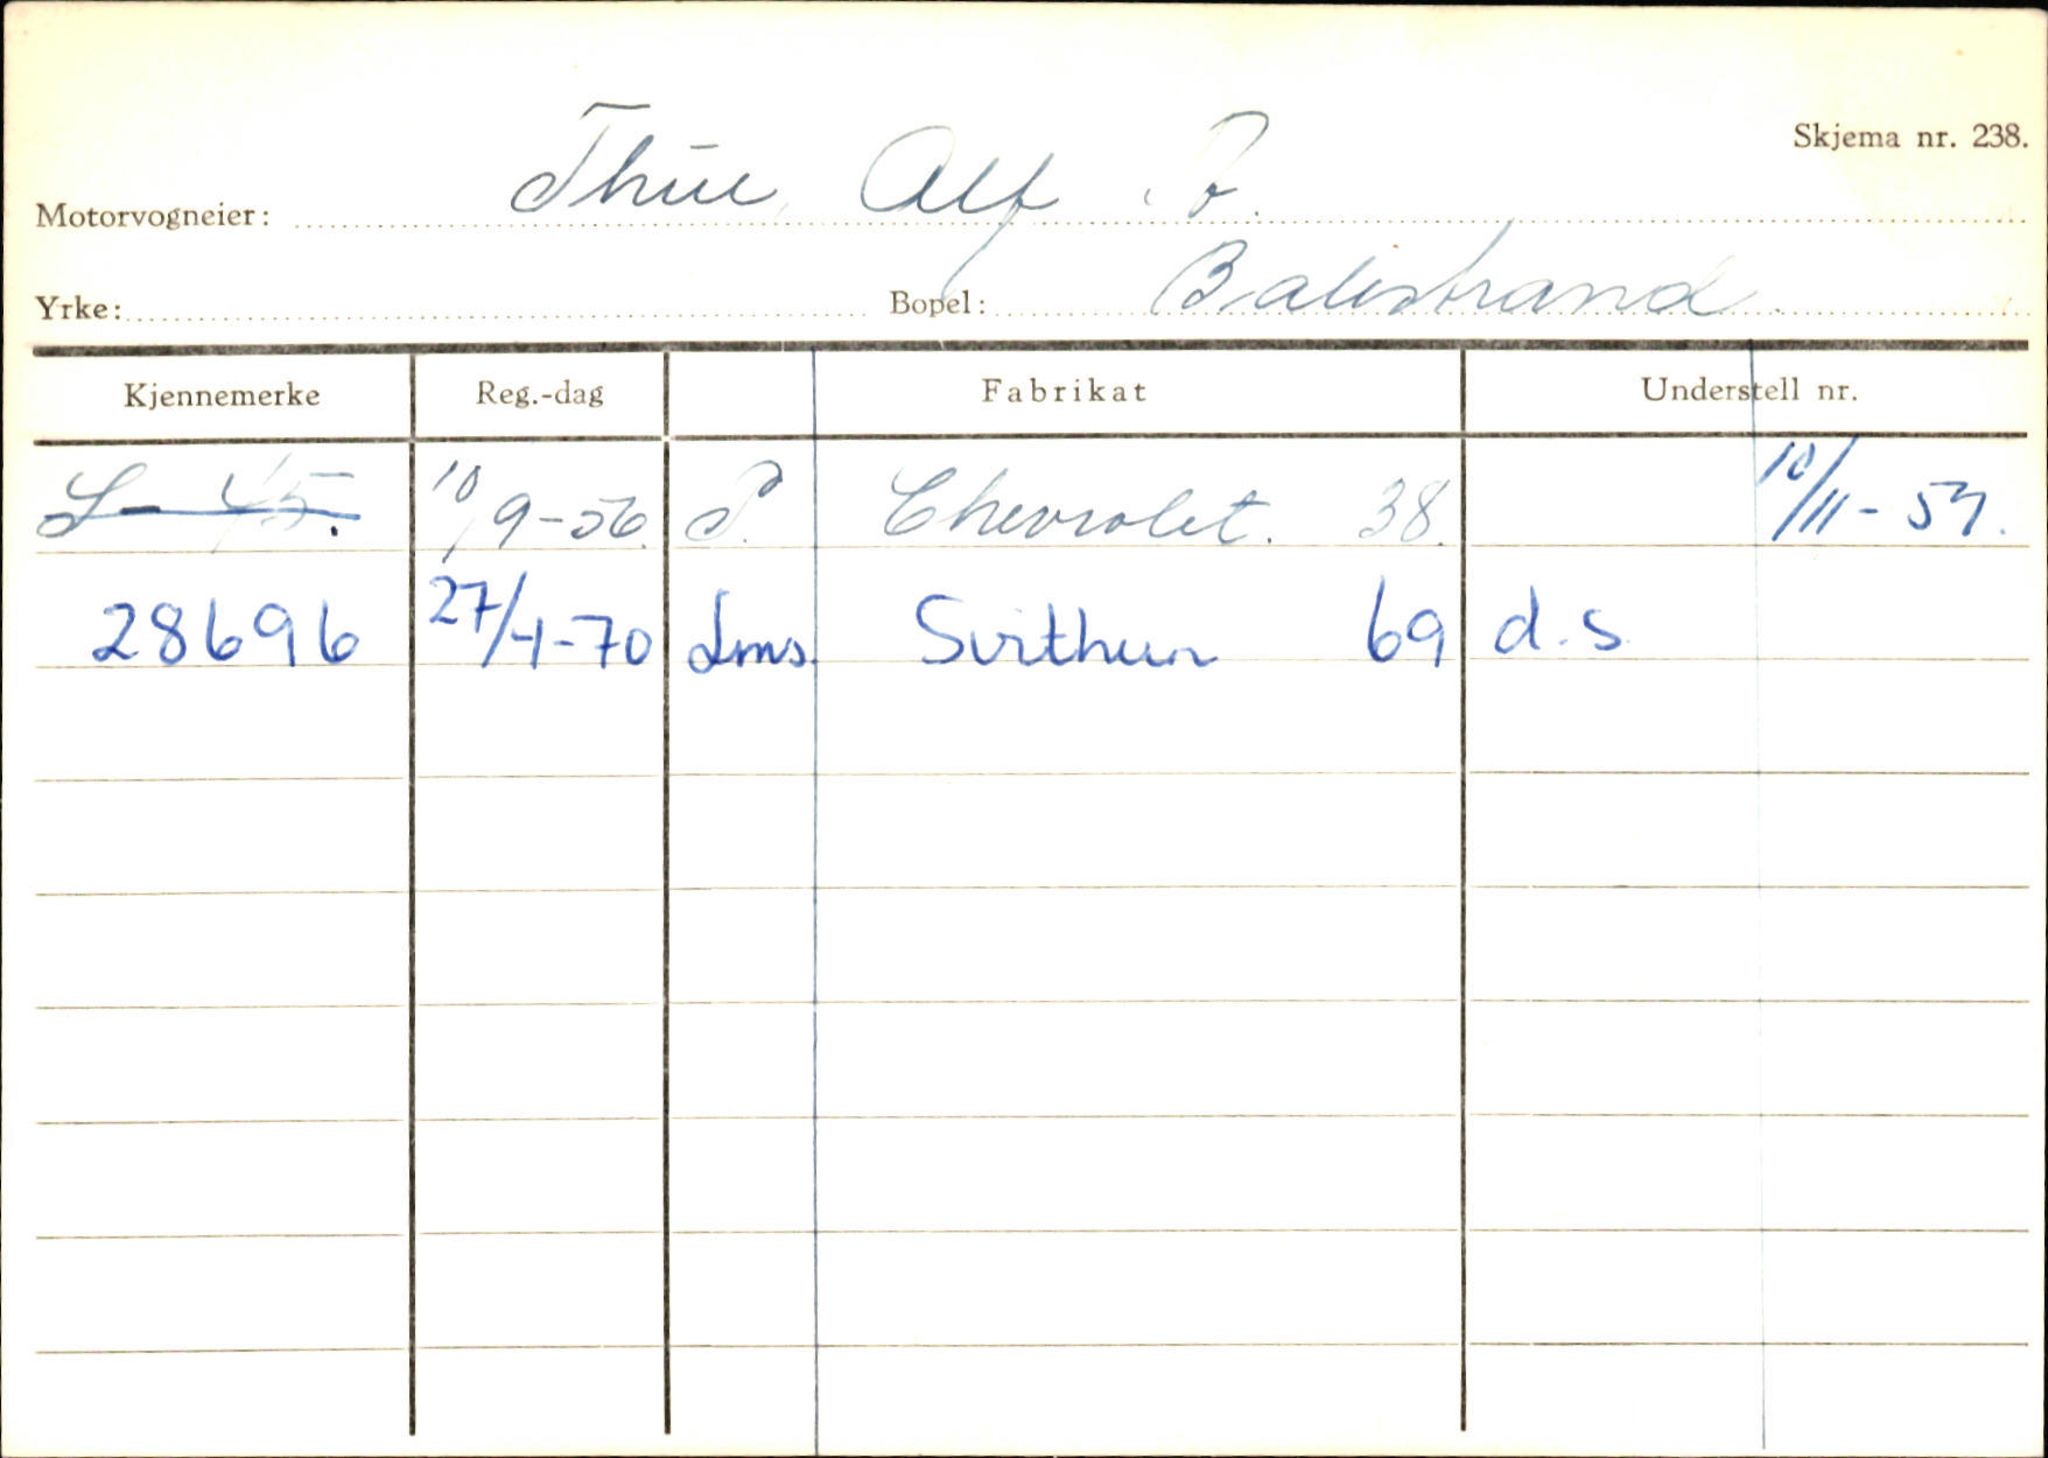 Skjema nr. 238.
Motorvogneier: Thue, Alf
Yrke: Bopel: Balestrand.
Kjennemerke Reg.-dag Fabrikat Understell nr.
S- 45. 10/9-56. P. Chevrolet. 38. 10/11-57.
28696 27/4-70 Lms. Svithun 69 d.s.